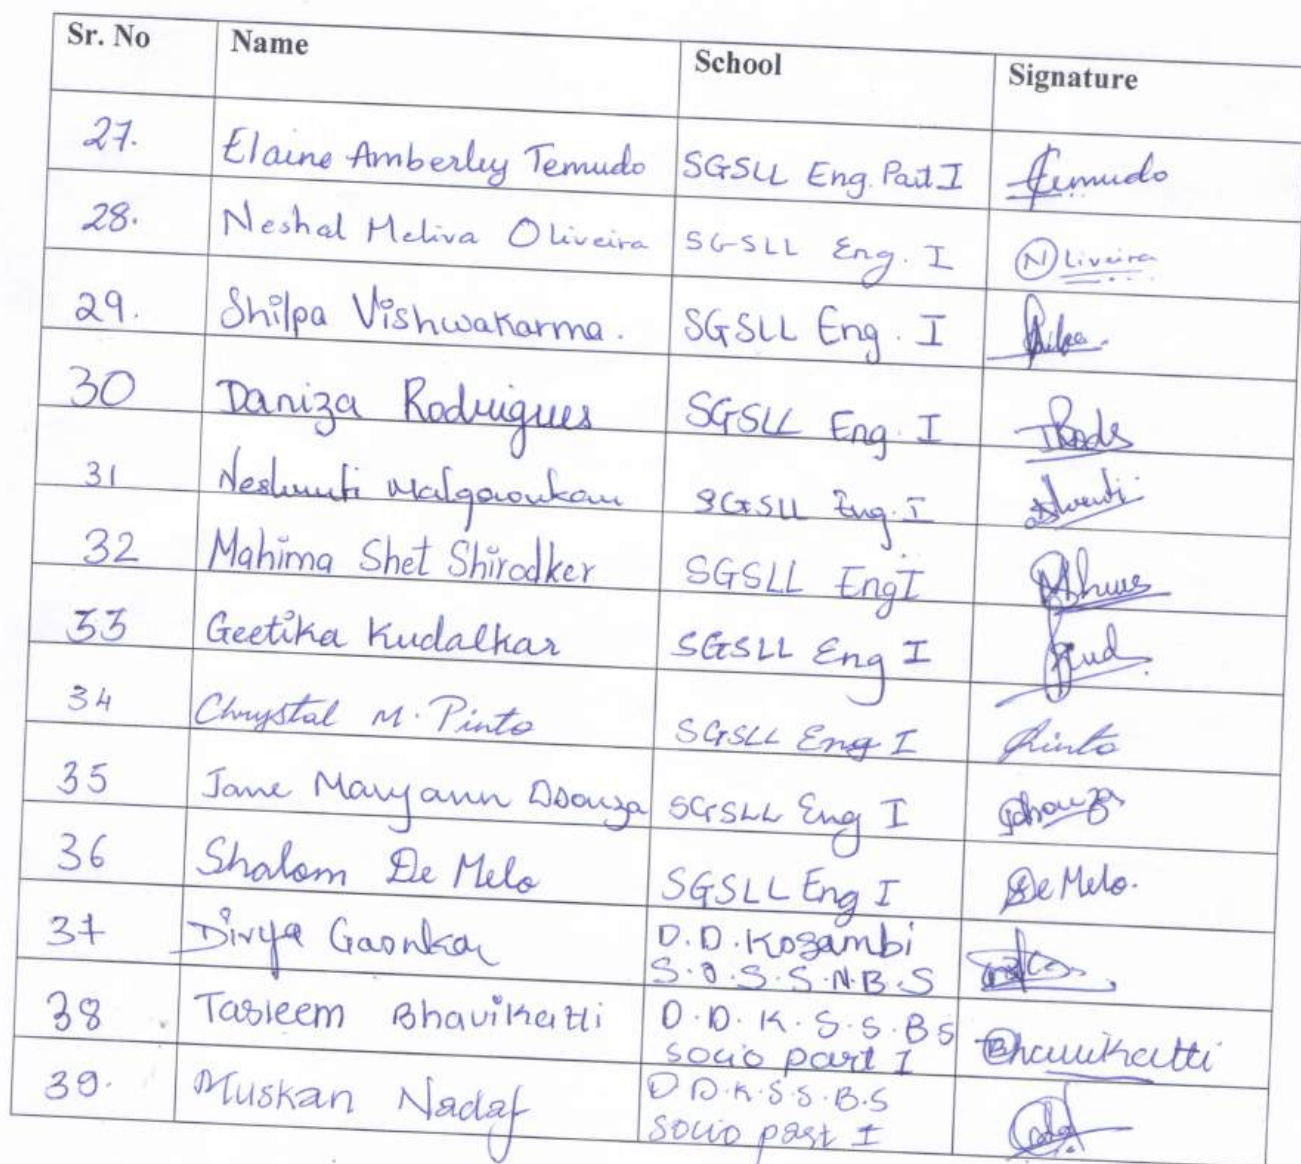 Sr. No Name School Signature
27. Elaine Amberley Temudo SGSLL Eng. Part I Temudo
28. Neshal Meliva Oliveira SGSLL Eng. I N Liveira
29. Shilpa Vishwakarma. SGSLL Eng. I
30 Daniza Rodrigues SGSLL Eng. I
31 SGSLL Eng. I
32 Mahima Shet Shirodker SGSLL Eng I
33 Geetika Kudalkar SGSLL Eng I
34 Chrystal M. Pinto SGSLL Eng I Pinto
35 Jane Maryann Dsouza SGSLL Eng I
36 Shalom De Melo SGSLL Eng I De Melo.
37 Divya Gaonkar D.D. Kosambi
S.O.S.S.N.B.S
38 Tasleem Bhavikatti D.D.K.S.S.BS Bhavikatti
socio part I
39. Muskan Nadaf D D.K.S.S.B.S
Socio part I